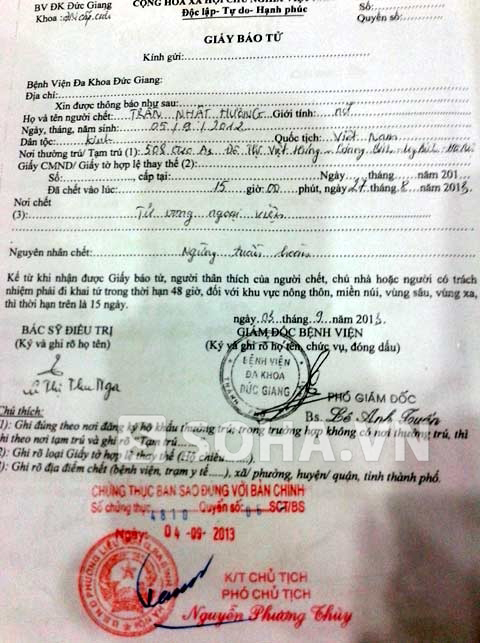 BV ĐK Đức Giang
Khoa: Cấp cứu
CỘNG HÒA XÃ HỘI CHỦ NGHĨA VIỆT
Độc lập- Tự do- Hạnh phúc
Số:
Quyển số:
GIẤY BÁO TỬ
Kính gửi:
Bệnh Viện Đa Khoa Đức Giang:
Địa chỉ:
Xin được thông báo như sau:
Họ và tên người chết: TRẦN NHẬT HƯỜNG Giới tính: nữ
Ngày, tháng, năm sinh: 05/9/2012
Dân tộc: Kinh Quốc tịch: Việt Nam
Nơi thường trú/ Tạm trú (1): 508 Đô Thị Việt Hưng - Long Biên - Hà Nội
Giấy CMND/ Giấy tờ hợp lệ thay thế (2):
Số: cấp tại: Ngày tháng năm 201
Đã chết vào lúc: 15 giờ 00 phút, ngày 27 tháng 8 năm 2013
Nơi chết
(3): Tử vong ngoại viện
Nguyên nhân chết: Ngừng tuần hoàn
Kể từ khi nhận được Giấy báo tử, người thân thích của người chết, chủ nhà hoặc người có trách
nhiệm phải đi khai tử trong thời hạn 48 giờ, đối với khu vực nông thôn, miền núi, vùng sâu, vùng xa,
thì thời hạn trên là 15 ngày.
ngày 03 tháng 9 năm 2013
BÁC SỸ ĐIỀU TRỊ
(Ký và ghi rõ họ tên)
GIÁM ĐỐC BỆNH VIỆN
(Ký và ghi rõ họ tên, chức vụ, đóng dấu)
BỆNH VIỆN
ĐA KHOA
ĐỨC GIANG
Thị Thu Nga
PHÓ GIÁM ĐỐC
Bs. Lê Anh Tuấn
Chú thích:
(1): Ghi đúng theo nơi đăng ký hộ khẩu thường trú, trong trường hợp không có nơi thường trú, thì
ghi theo nơi tạm trú và ghi rõ Tạm trú
(2): Ghi rõ loại Giấy tờ hợp lệ thay thế (Hộ chiếu....).
(3): Ghi rõ địa điểm chết (bệnh viện, trạm y tế.....), xã/ phường, huyện/ quận, tỉnh thành phố.
SOHA.VN
CHỨNG THỰC BẢN SAO ĐÚNG VỚI BẢN CHÍNH
Số chứng thực: 4810 Quyển số: SCT/BS
Ngày: 04-09-2013
K/T CHỦ TỊCH
PHÓ CHỦ TỊCH
Nguyễn Phương Thùy